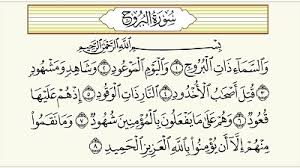 سُورَةُ الْبُرُوجِ
بِسْمِ اللَّهِ الرَّحْمَٰنِ الرَّحِيمِ
وَالسَّمَاءِ ذَاتِ الْبُرُوجِ ١ وَالْيَوْمِ الْمَوْعُودِ ٢ وَشَاهِدٍ وَمَشْهُودٍ
٣ قُتِلَ أَصْحَابُ الْأُخْدُودِ ٤ النَّارِ ذَاتِ الْوَقُودِ ٥ إِذْ هُمْ عَلَيْهَا
قُعُودٌ ٦ وَهُمْ عَلَىٰ مَا يَفْعَلُونَ بِالْمُؤْمِنِينَ شُهُودٌ ٧ وَمَا نَقَمُوا
مِنْهُمْ إِلَّا أَنْ يُؤْمِنُوا بِاللَّهِ الْعَزِيزِ الْحَمِيدِ ٨